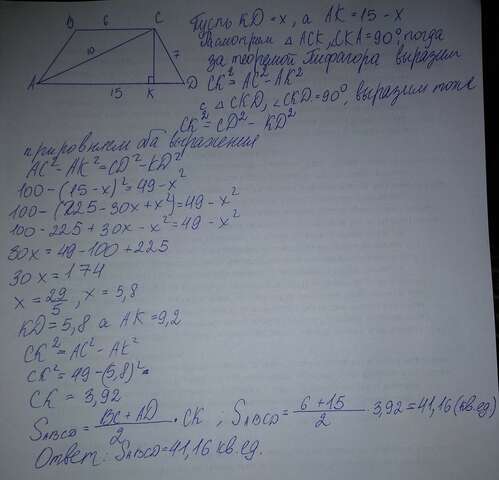 B 6 C
10 7
A 15 K D
Пусть KD = x, а AK = 15 - x
Расмотрем △ ACK, ∠CKA = 90°, тогда
за теоремой Пифагора выразим
CK² = AC² - AK²
с △ CKD, ∠CKD = 90°, выразим тоже
CK² = CD² - KD²
прировняем оба выражения
AC² - AK² = CD² - KD²
100 - (15 - x)² = 49 - x²
100 - (225 - 30x + x²) = 49 - x²
100 - 225 + 30x - x² = 49 - x²
30x = 49 - 100 + 225
30x = 174
x = 29/5, x = 5,8
KD = 5,8 а AK = 9,2
CK² = AC² - AK²
CK² = 49 - (5,8)²
CK = 3,92
SABCD = BC + AD / 2 · CK ; SABCD = 6 + 15 / 2 · 3,92 = 41,16 (кв.ед)
Ответ: SABCD = 41,16 кв.ед.